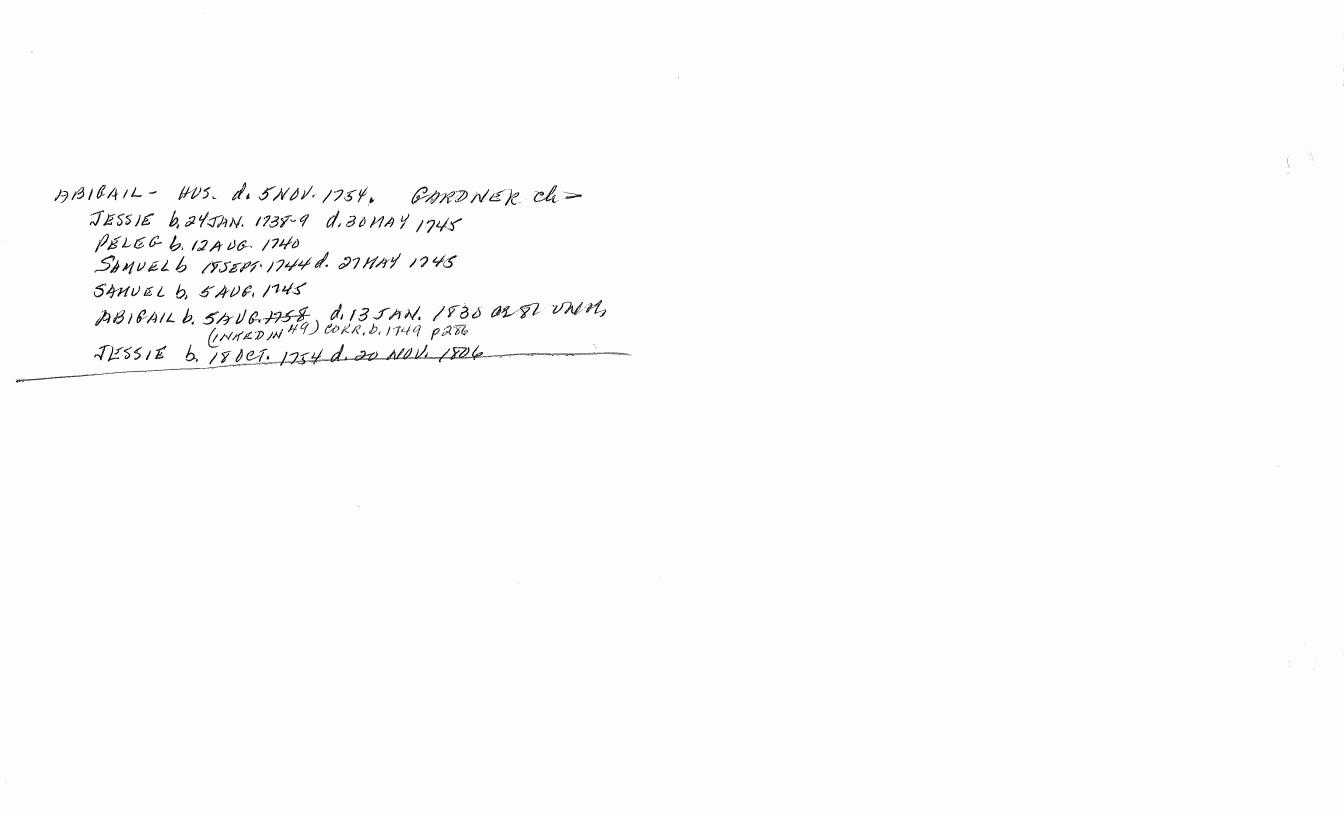 ABIGAIL - HUS. d. 5 NOV. 1754. GARDNER ch -
JESSIE b. 24 JAN. 1738-9 d. 30 MAY 1745
PELEG b. 12 AUG. 1740
SAMUEL b 18 SEPT. 1744 d. 27 MAY 1745
SAMUEL b. 5 AUG. 1745
ABIGAIL b. 5 AUG. 1758 d. 13 JAN. 1830 ae 81 UNM,
(INKED IN 49) CORR. b. 1749 p286
JESSIE b. 18 OCT. 1754 d. 20 NOV. 1806